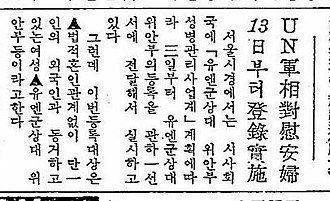 UN軍相對慰安婦
13日부터登錄實施
서울시경에서는 시사회
국에 「유엔군상대 위안부
성병관리사업계」계획에따
라 三일부터 유엔군상대
위안부의등록을 관하一선
서에 전달해서 실시하고
있다
그런데 이번등록대상은
▲법적혼인관계없이 단一
인의 외국인과 동거하고
있는여성▲유엔군상대 위
안부등이라고한다